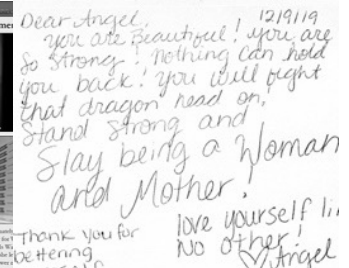 Dear Angel,
12/9/19
you are Beautiful! you are
So Strong! Nothing can hold
you back! you will fight
that dragon head on,
Stand Strong and
Slay being a Woman
and Mother!
Thank you for
bettering
love yourself li
No other!
♡ Angel